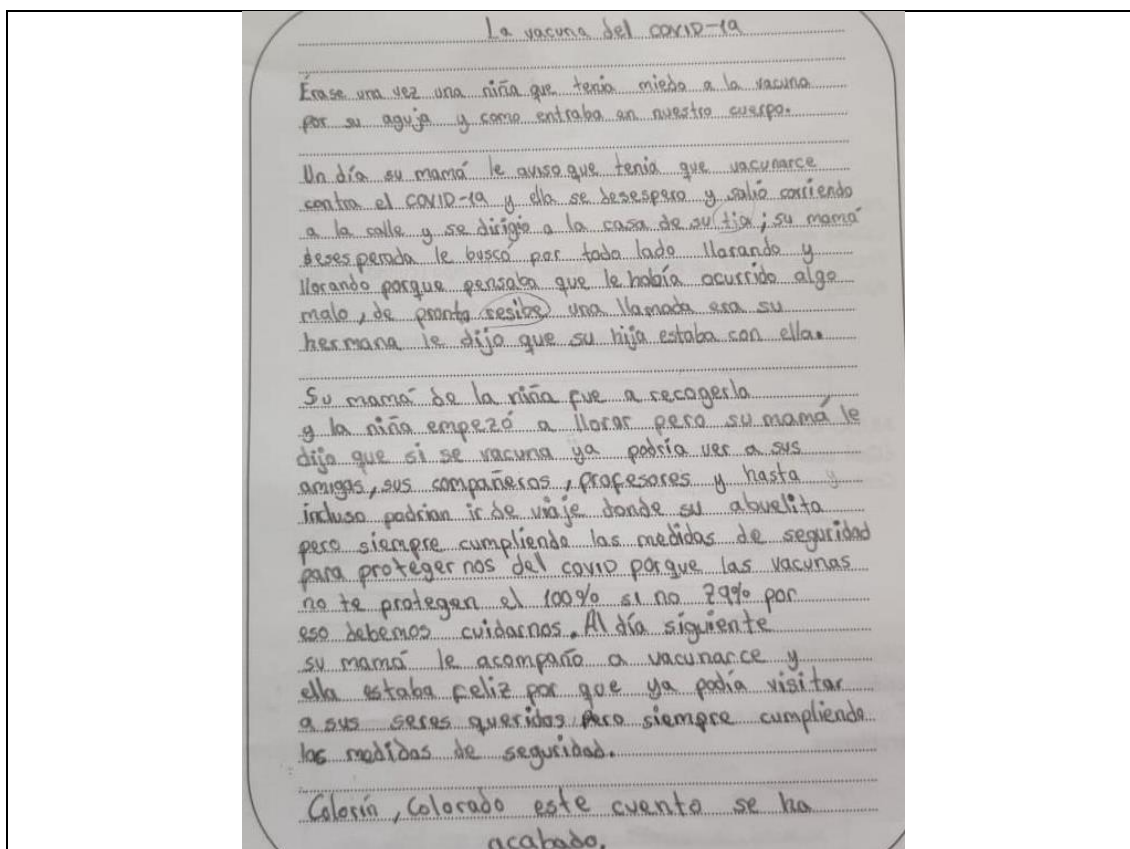 La vacuna del COVID-19
Érase una vez una niña que tenia miedo a la vacuna
por su aguja y como entraba en nuestro cuerpo.
Un día su mamá le aviso que tenia que vacunarce
contra el COVID-19 y ella se desespero y salió corriendo
a la calle y se dirigio a la casa de su tia; su mamá
desesperada le buscó por todo lado llorando y
llorando porque pensaba que le había ocurrido algo
malo, de pronto resibe una llamada era su
hermana le dijo que su hija estaba con ella.
Su mamá de la niña fue a recogerla
y la niña empezó a llorar pero su mamá le
dijo que si se vacuna ya podría ver a sus
amigas, sus compañeros, profesores y hasta y
incluso podrian ir de viaje donde su abuelita
pero siempre cumpliendo las medidas de seguridad
para proteger nos del COVID porque las vacunas
no te protegen el 100% si no 79% por
eso debemos cuidarnos. Al día siguiente
su mamá le acompaño a vacunarce y
ella estaba feliz por que ya podía visitar
a sus seres queridos pero siempre cumpliendo
las medidas de seguridad.
Colorín, Colorado este cuento se ha
acabado.